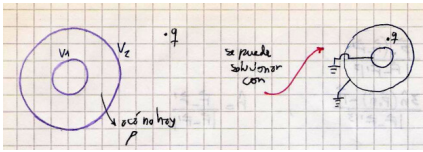 V1
V2
.q
acá no hay
ρ
se puede
solucionar
con
.q